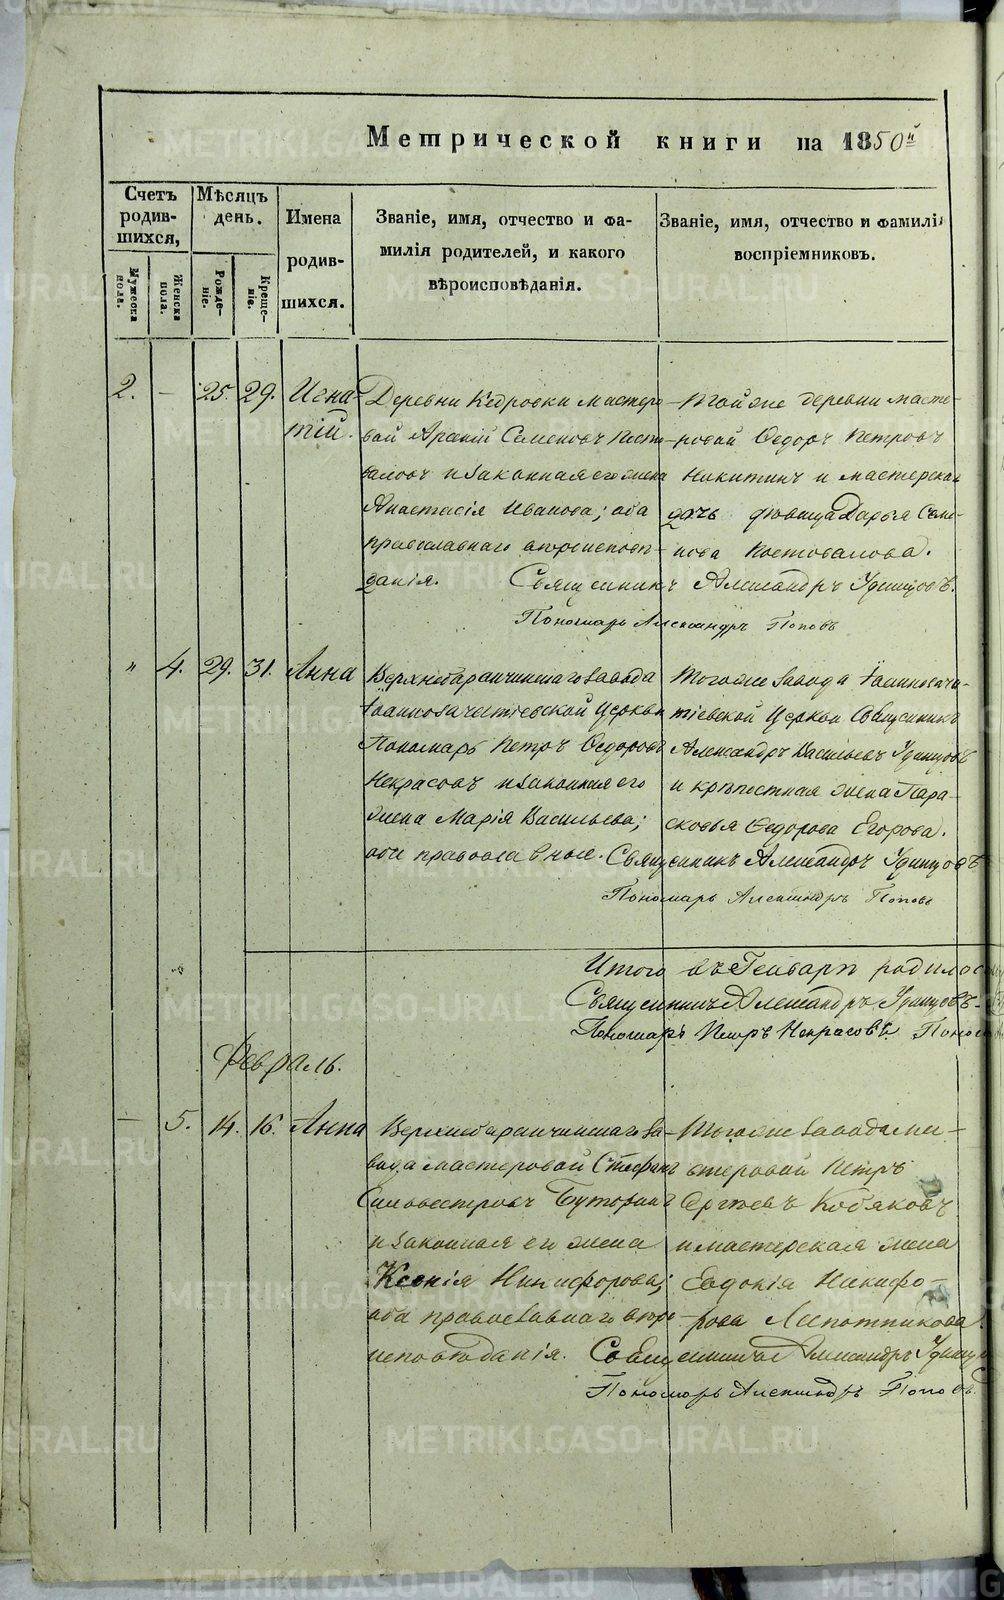 Метрической книги на 1850й
Счетъ родив-шихся,
Мѣсяцъ день.
Имена родив-шихся.
Званіе, имя, отчество и фа-
милія родителей, и какого
вѣроисповѣданія.
Званіе, имя, отчество и фамилія
воспріемниковъ.
Мужеска пола.
Женска пола.
Рожде-ніе.
Креще-ніе.
2. — 25. 29. Игна-
тій.
Деревни Кедровки мастеро-
вой Семеновъ Косто-
валовъ и законная его жена
Анастасія Иванова; оба
православнаго вѣроисповѣ-
данія.
Тойже деревни масте-
ровой Ѳедоръ Петровъ
Никитинъ и мастерская
дочь дѣвица Дарья Семе-
нова Костовалова.
Священникъ Александръ Удинцовъ.
Пономарь Александръ Поповъ
" 4. 29. 31. Анна
Верхнебаранчинскаго завода
Іоаннозачатіевской Церкви
Пономарь Петръ Ѳедоровъ
Некрасовъ и законная его
жена Марія Васильева;
оба православные.
Тогоже завода Іаннозача-
тіевской Церкви Священникъ
Александръ Васильевъ Удинцовъ
и крѣпостная жена Пара-
сковья Ѳедорова Егорова.
Священникъ Александръ Удинцовъ
Пономарь Александръ Поповъ
Итого въ Генварѣ родилос
Священникъ Александръ Удинцовъ
Пономарь Петръ Некрасовъ Поном
Февраль.
— 5. 14. 16. Анна
Верхнебаранчинскаго за-
вода мастеровой Стефанъ
Сильвестровъ Буторинъ
и законная его жена
Ксенія Никифорова;
оба православнаго вѣро-
исповѣданія.
Тогоже завода мас-
теровой Петръ
Сергѣевъ Кобяковъ
и мастерская жена
Евдокія Никифо-
рова Лепотникова.
Священникъ Александръ Удинцо
Пономарь Александръ Поповъ.
METRIKI.GASO-URAL.RU